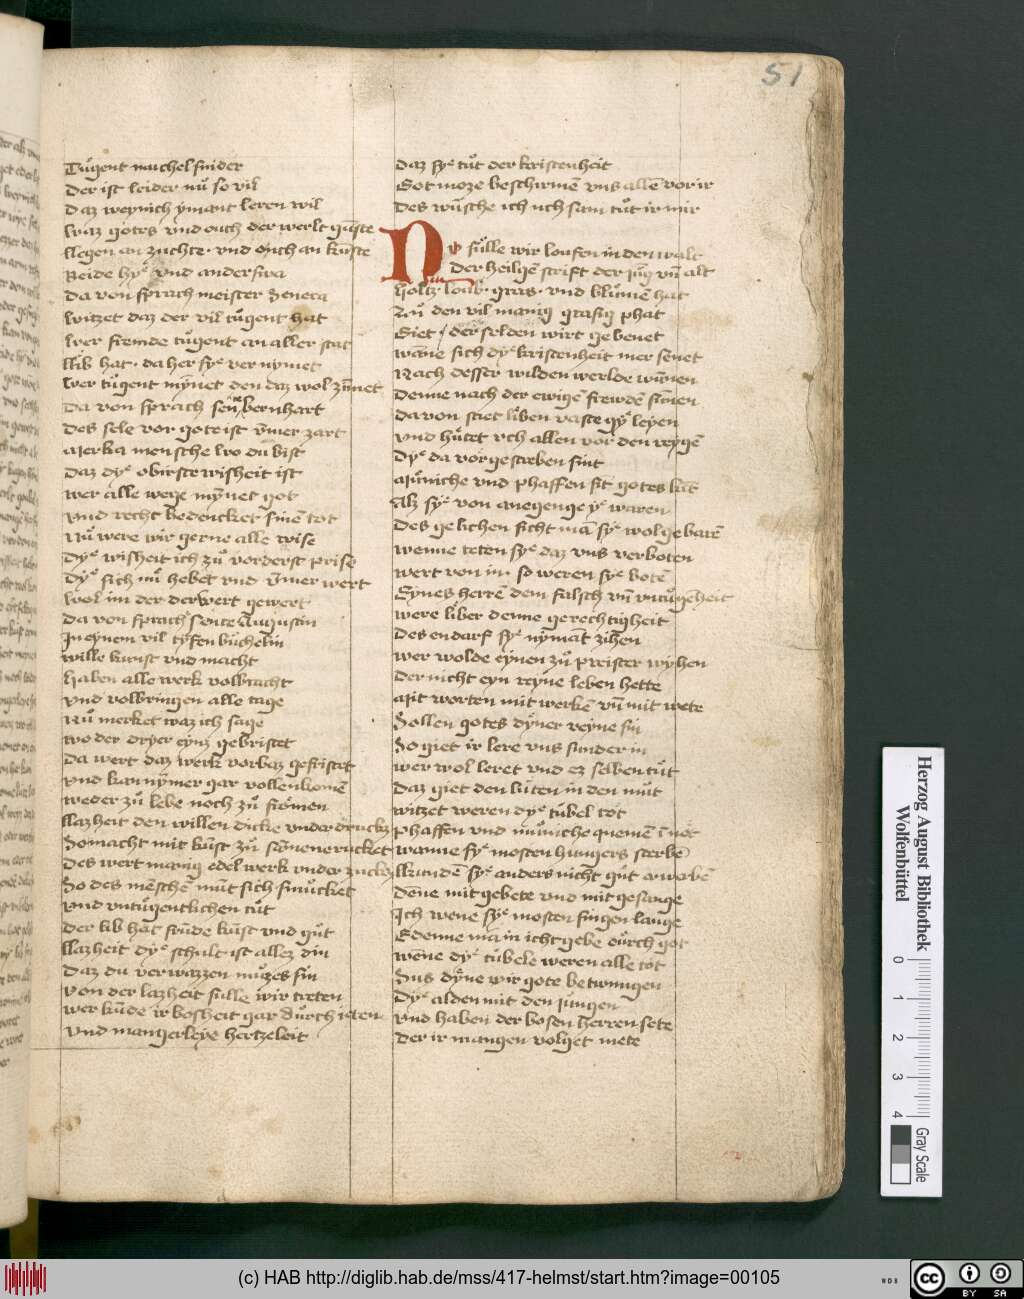 51
Tugent machel sunder
Der ist leider nů so vil
Daz weynich ymant leren wil
Waz gotes vnd ouch der werlt gůste
Kegen an zuchte · vnd ouch an kunste
Beide hye vnd anderswa
Da von sprach meister Seneca
Witzet daz der vil tůgent hat
Wer fremde tůgent an aller stat
Lib hat · da her sye ver nymet
Wer tůgent mynet den daz wol zymet
Da von sprach sent bernhart
Des sele vor gote ist ymer zart
Merka mensche wo du bist
Daz dye obirste wisheit ist
Wer alle wege mynet got
vnd recht bedencket sinē tot
Nů were wir gerne alle wise
Dye wisheit ich zů vorderst prise
Dye sich nů hebet vnd ymer wert
Wol im der der wert gewert
Da von sprach sente Augustin
In eynem vil tyfen bůchelin
Wille kunst vnd macht
Haben alle werk volbracht
vnd volbringen alle tage
Nů merket waz ich sage
Wo der dryer eynz gebristet
Da wert daz werk vorbaz gefristet
vnd kan nymer gar vollenkomē
Weder zů lebe noch zů fromen
Lazheit den willen dicke vnder drucket
So macht mit kůst zů samene rucket
Des wert manig edel werk vnder zucket
So des mēschē mut sich smucket
vnd vntůgentlichen tůt
Der lib hat sůnde kůst vnd gůt
Lazheit dye schult ist allez din
Daz du verwazzen můzes sin
von der lazheit sulle wir treten
Wer kůnde ir bosheit gar durch ieten
vnd mangerleye hertzeleit
Daz sye tůt der kristenheit
Got moze beschirmē vns allē vor ir
Des wůsche ich uch sam tůt ir mir
Nv sulle wir loufen in den walt
Der heiligē scrift der iūg vn̄ alt
Holtz · loub · gras · vnd blůmē hat
Zů den vil manig grasig phat
Get der selden wirt gebenet
wane sich dye kristenheit mer senet
Nach desser wilden werlde wůnen
Denne nach der ewigē frewdē sůnen
da von stiet liben vaste ye leyen
vnd hůtet vch allen vor den reygē
Dye da vorgescreben sint
Můniche vnd phaffen sit gotes kīt
Alz sye von anegenge ye waren
Des gelichen sicht mā sye wol gebarē
wenne teten sye daz vns verboten
wert von im · so weren sye botē
Eynes herrē dem falsch vn̄ vntůgeheit
were liber denne gerechtigheit
Des endarf sye nymāt zihen
wer wolde eynen zů prister wyhen
Der nicht eyn reyne leben hette
Mit worten mit werkē vn̄ mit wete
Sollen gotes dyner reyne sin
So giet ir lere vns sunder in
wer wol leret vnd ez selben tůt
Daz giet den lůten in den můt
witzet weren dye tubel tot
phaffen vnd můniche quemē ī not
wanne sye mosten hungers sterbē
Kundē sye anders nicht gůt erwerbē
Dēne mit gebete vnd mit gesange
Ich wene sye mosten singen lange
E denne man icht gebe durch got
wene dye tubele weren alle tot
Sus dyne wir gote betwungen
Dye alden mit den jungen
vnd haben der bosen herren sete
Der ir mangen volget mete
Herzog August Bibliothek
Wolfenbüttel
0 1 2 3 4
Gray Scale
(c) HAB http://diglib.hab.de/mss/417-helmst/start.htm?image=00105
WDB
cc BY SA